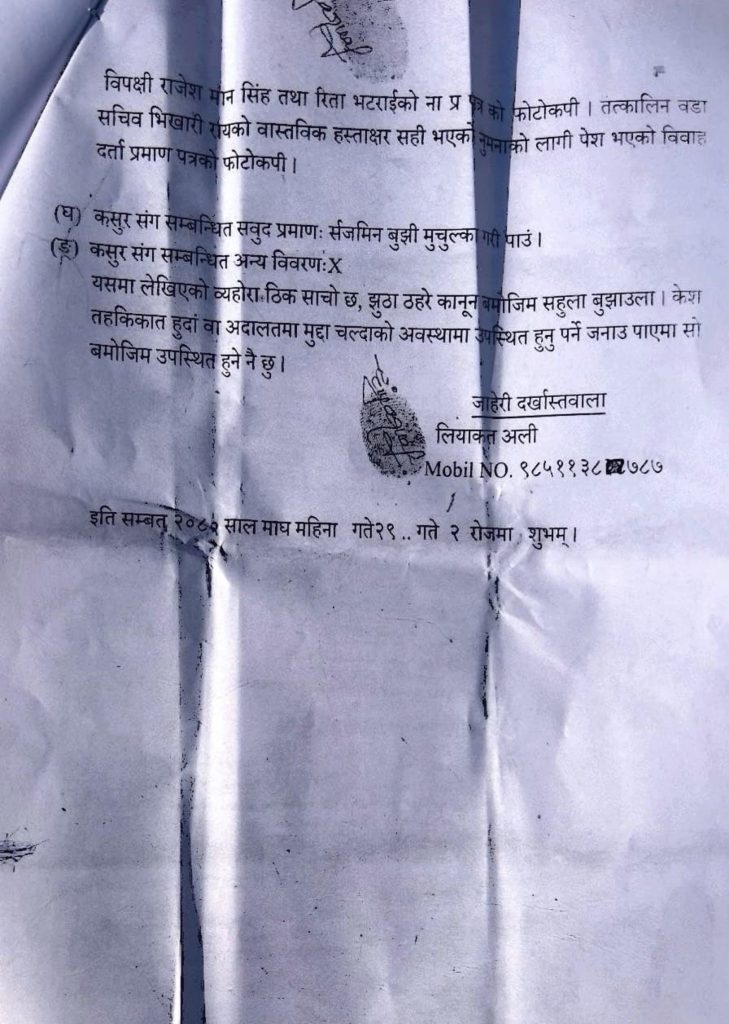 विपक्षी राजेश मान सिंह तथा रिता भटराईको ना प्र पत्र को फोटोकपी । तत्कालिन वडा
सचिव भिखारी रायको वास्तविक हस्ताक्षर सही भएको नुमनाको लागी पेश भएको विवाह
दर्ता प्रमाण पत्रको फोटोकपी ।
(घ) कसुर संग सम्बन्धित सवुद प्रमाणः र्सजमिन बुझी मुचुल्का गरी पाउं ।
(ङ) कसुर संग सम्बन्धित अन्य विवरणःX
यसमा लेखिएको व्यहोरा ठिक साचो छ, झुठा ठहरे कानून बमोजिम सहुला बुझाउला । केश
तहकिकात हुदां वा अदालतमा मुद्दा चल्दाको अवस्थामा उपस्थित हुनु पर्ने जनाउ पाएमा सो
बमोजिम उपस्थित हुने नै छु ।
जाहेरी दर्खास्तवाला
लियाकत अली
Mobil NO. ९८५११३८ ७८७
इति सम्बत् २०८२ साल माघ महिना गते२९ .. गते २ रोजमा शुभम् ।